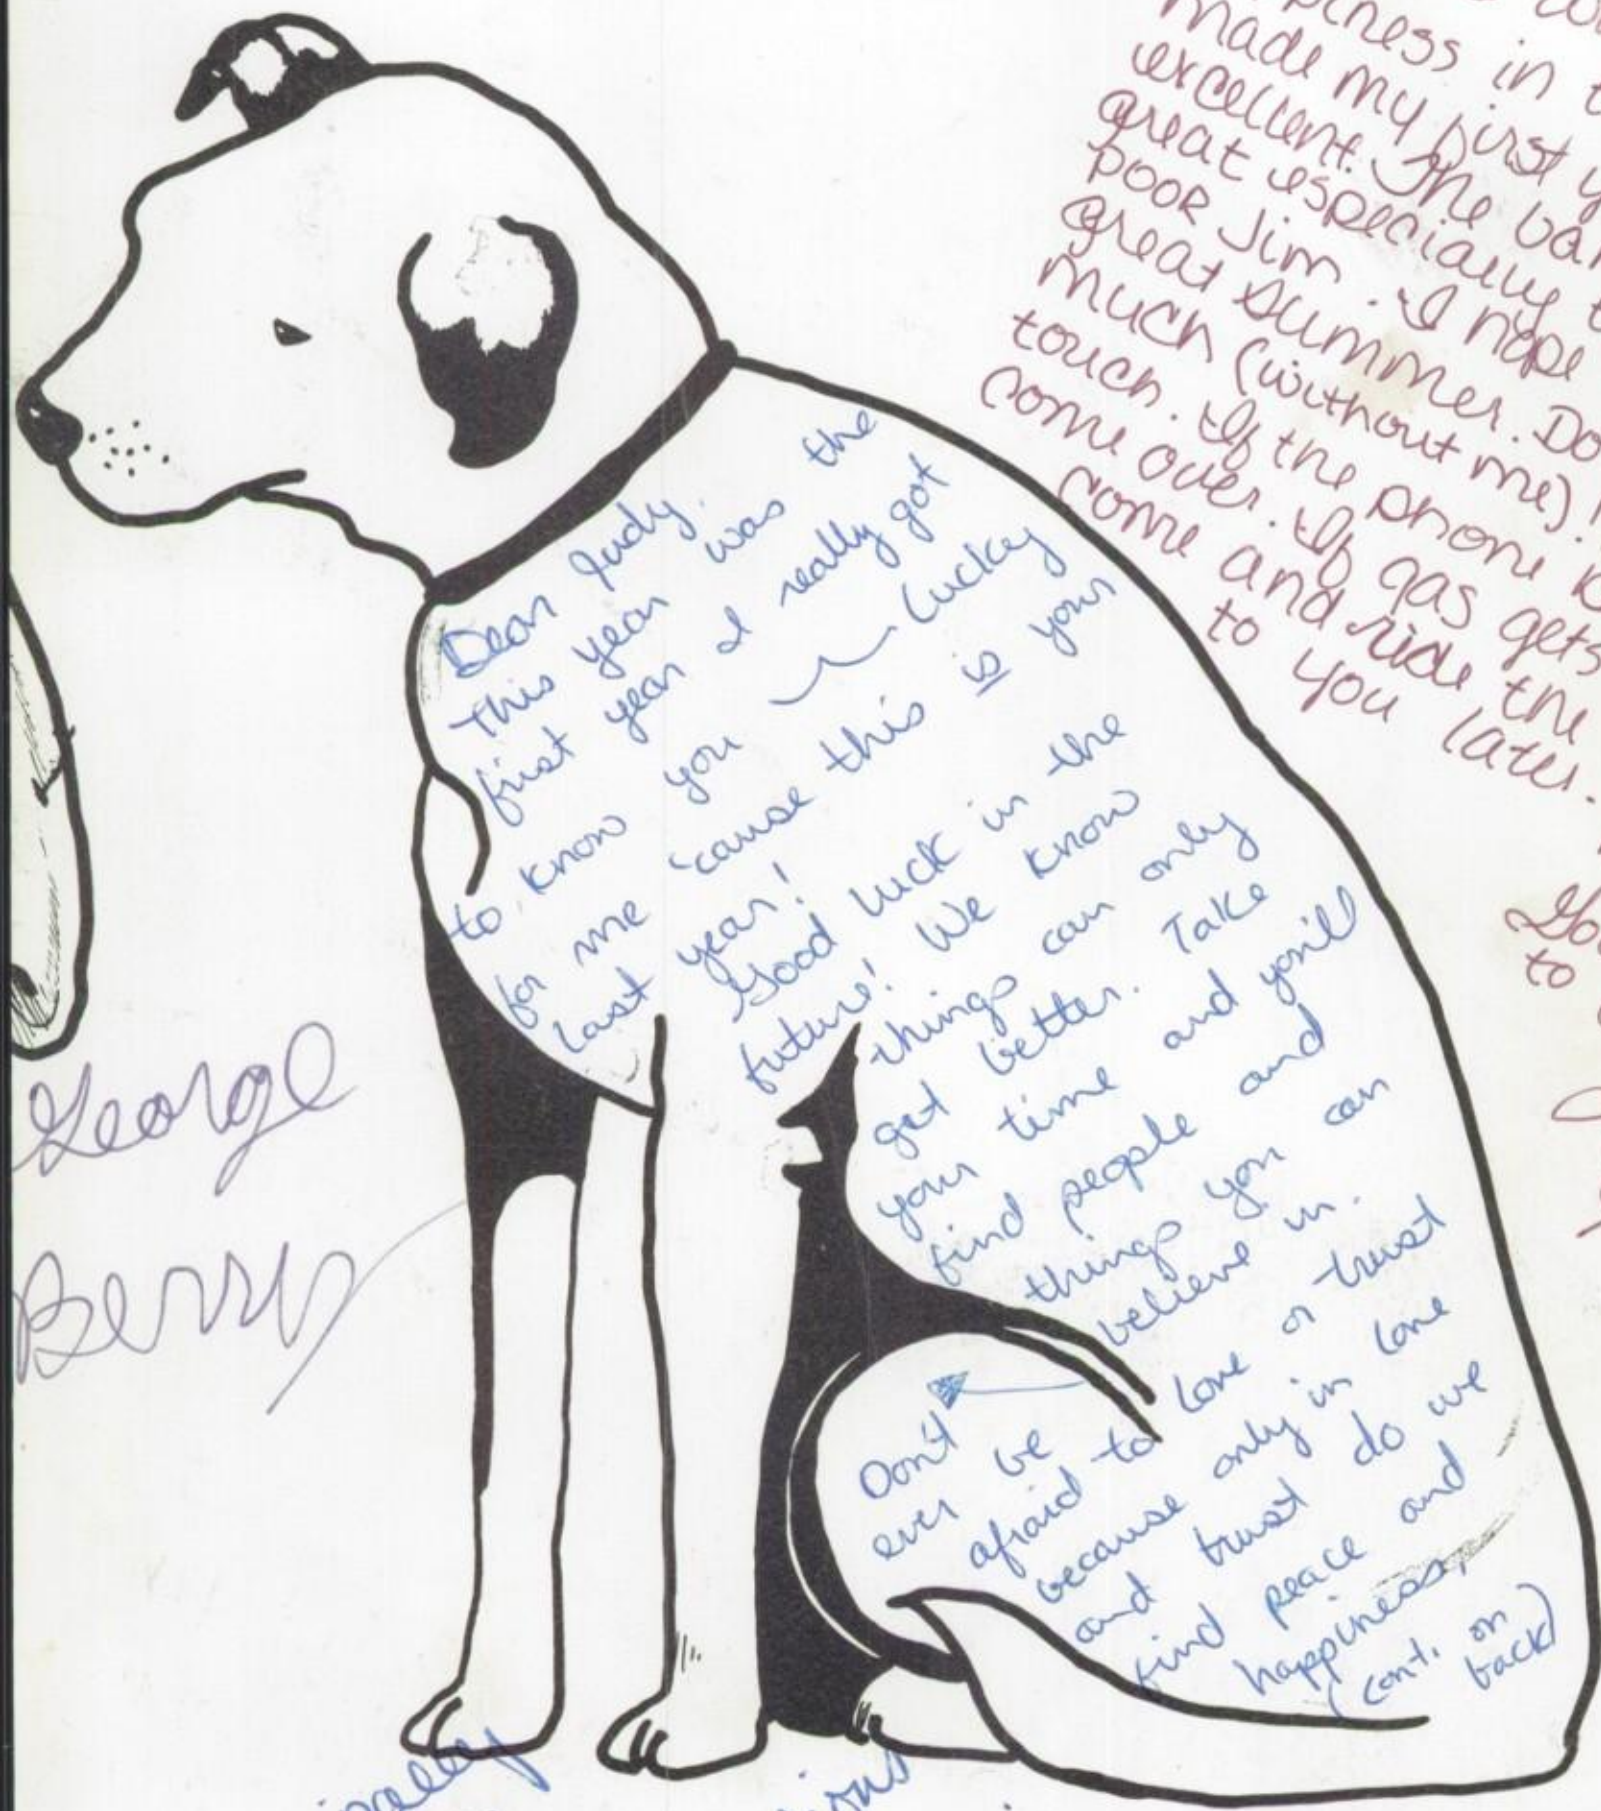 Dear Judy.
This year was the
first year I really got
to know you ~ Luckey
for me 'cause this is your
last year!
Good luck in the
future! We know
things can only
get better. Take
your time and you'll
find people and
things you can
believe in.
Don't
ever be
afraid to love or trust
because only in love
and trust do we
find peace and
happiness,
(cont. on
back)
George
Berry
in
made my first
excellent. The
great especially
poor Jim. I hope
great summer. Do
much (without me)!
touch. If the phone
come over. If gas gets
come and ride the
to you later.
to